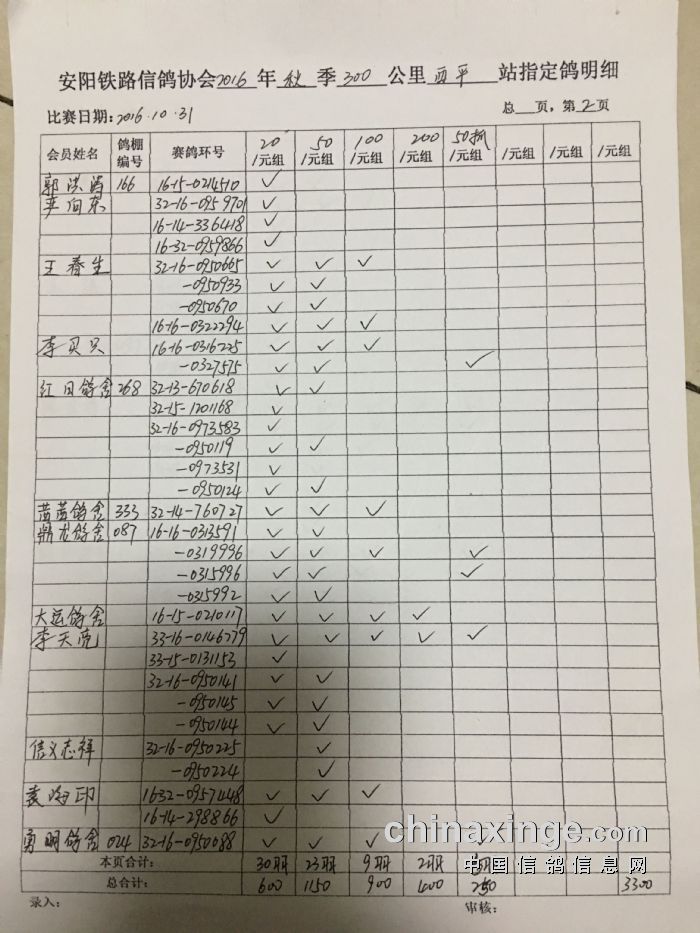 安阳铁路信鸽协会2016年秋季300公里西平站指定鸽明细
比赛日期：2016.10.31 总__页，第2页
会员姓名 鸽棚编号 赛鸽环号 20/元组 50/元组 100/元组 200/元组 50抓/元组 /元组 /元组 /元组
郭洪涛 166 16-15-0214510 ✓
辛向东 32-16-0959701 ✓
16-14-336418 ✓
16-32-0959866 ✓
王春生 32-16-0950665 ✓ ✓ ✓
-0950933 ✓ ✓
-0950670 ✓ ✓
16-16-0322294 ✓ ✓ ✓
李贝贝 16-16-0316225 ✓ ✓ ✓
-0327575 ✓ ✓ ✓
红日鸽舍 268 32-13-670618 ✓ ✓
32-15-1201168 ✓
32-16-0973583 ✓
-0950119 ✓ ✓
-0973531 ✓
-0950124 ✓ ✓
茜茜鸽舍 333 32-14-760727 ✓ ✓ ✓
鼎龙鸽舍 087 16-16-0313591 ✓ ✓
-0319996 ✓ ✓ ✓ ✓
-0315996 ✓ ✓ ✓
-0315992 ✓ ✓
大运鸽舍 16-15-0210117 ✓ ✓ ✓ ✓
李天亮 33-16-0146779 ✓ ✓ ✓ ✓ ✓
33-15-0131153 ✓
32-16-0950141 ✓ ✓
-0950145 ✓ ✓
-0950144 ✓ ✓
信义志祥 32-16-0950225 ✓
-0950224 ✓
袁海印 16-32-0957448 ✓ ✓ ✓
16-14-298866 ✓
勇明鸽舍 024 32-16-0950088 ✓ ✓ ✓ ✓
本页合计： 30羽 23羽 9羽 2羽 羽
总合计： 600 1150 900 400 250 3300
录入： 审核：
chinaxinge.com
中国信鸽信息网